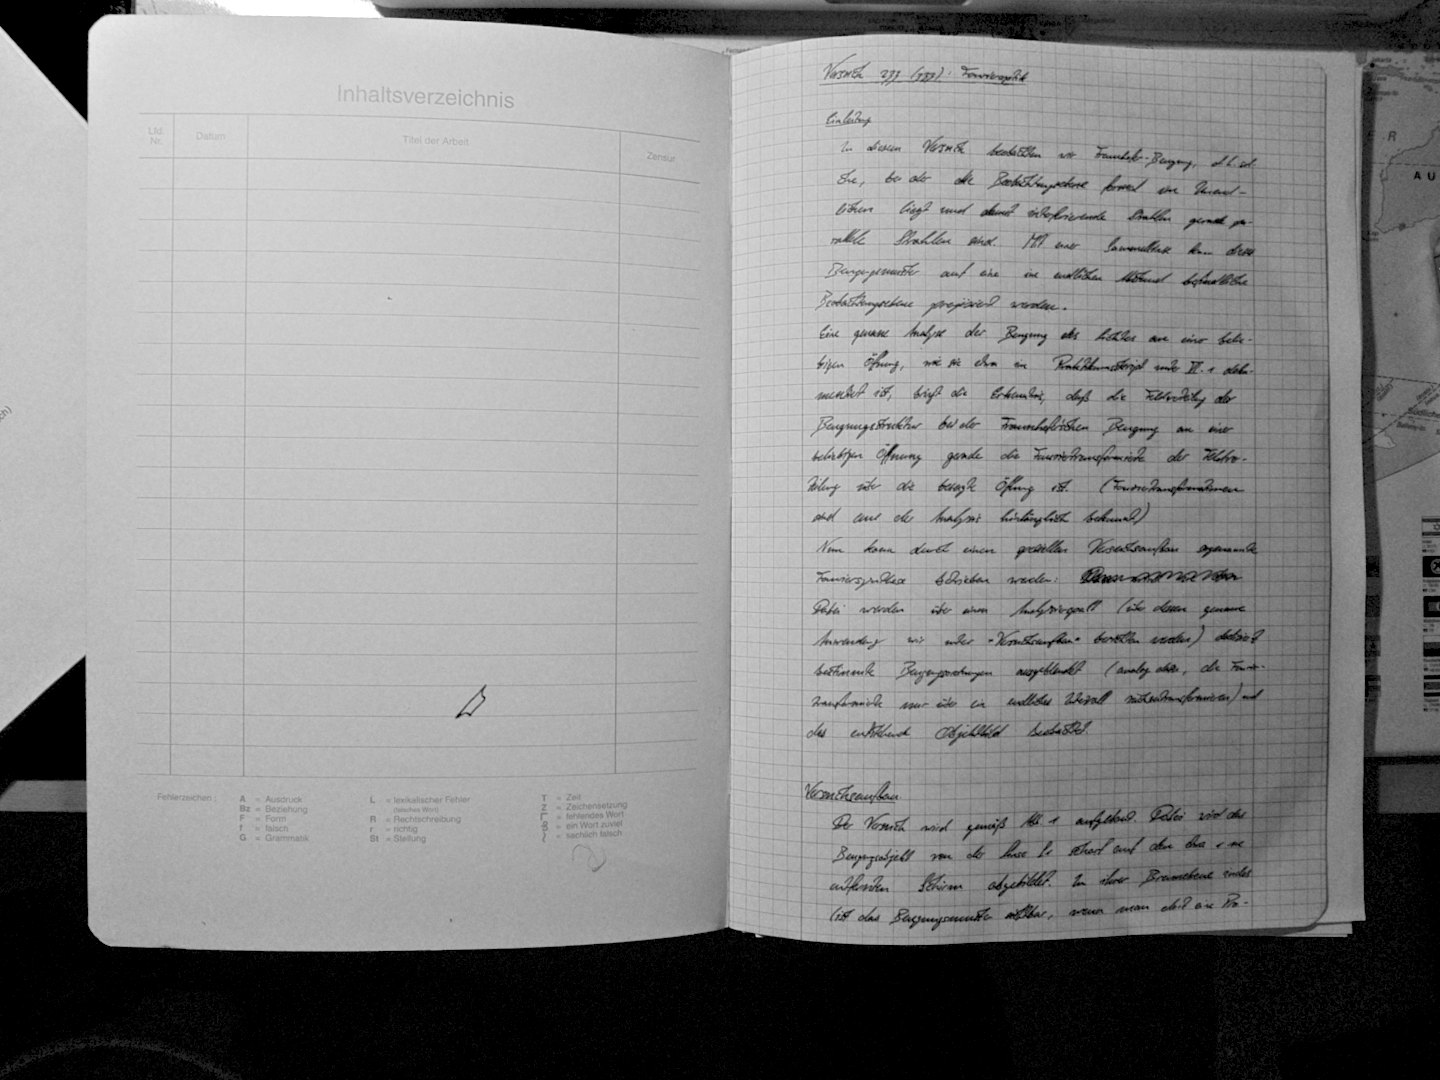 Inhaltsverzeichnis
Lfd. Nr.
Datum
Titel der Arbeit
Zensur
Fehlerzeichen:
A = Ausdruck
Bz = Beziehung
F = Form
f = falsch
G = Grammatik
L = lexikalischer Fehler
(falsches Wort)
R = Rechtschreibung
r = richtig
St = Stellung
T = Zeit
Z = Zeichensetzung
Γ = fehlendes Wort
= ein Wort zuviel
= sachlich falsch
Versuch 233 : Fourieroptik
Einleitung
In diesem Versuch beobachten wir Fraunhofer-Beugung, d.h. solche, bei der die Beobachtungsebene formal im Unend-
lichen liegt und damit interferierende Strahlen gerade pa-
rallele Strahlen sind. Mit einer Sammellinse kann dieses
Beugungsmuster auf eine im endlichen Abstand befindliche
Beobachtungsebene projiziert werden.
Eine genaue Analyse der Beugung des Lichtes an einer belie-
bigen Öffnung, wie sie etwa im unter II.1 doku-
mentiert ist, bringt die Erkenntnis, daß die Feldverteilung der
Beugungsstruktur bei der Fraunhoferschen Beugung an einer
beliebigen Öffnung gerade die Fouriertransformierte der Feldver-
teilung über die besagte Öffnung ist. (Fouriertransformationen
sind aus der Analysis hinlänglich bekannt)
Nun kann durch einen speziellen Versuchsaufbau sogenannte
Fouriersynthese betrieben werden:
Dabei werden über einen Analysierspalt (über dessen genaue
Anwendung wir unter "Versuchsaufbau" berichten werden)
bestimmte Beugungsordnungen ausgeblendet (analog dazu, die Fourier-
transformierte nur über ein endliches Intervall rückzutransformieren) und
das entstehende Objektbild beobachtet.
Versuchsaufbau
Der Versuch wird gemäß Abb. 1 aufgebaut. Dabei wird das
Beugungsobjekt von der Linse L1 scharf auf den etwa 1 m
entfernten Schirm abgebildet. In ihrer Brennebene
ist das Beugungsmuster sichtbar, wenn man dort